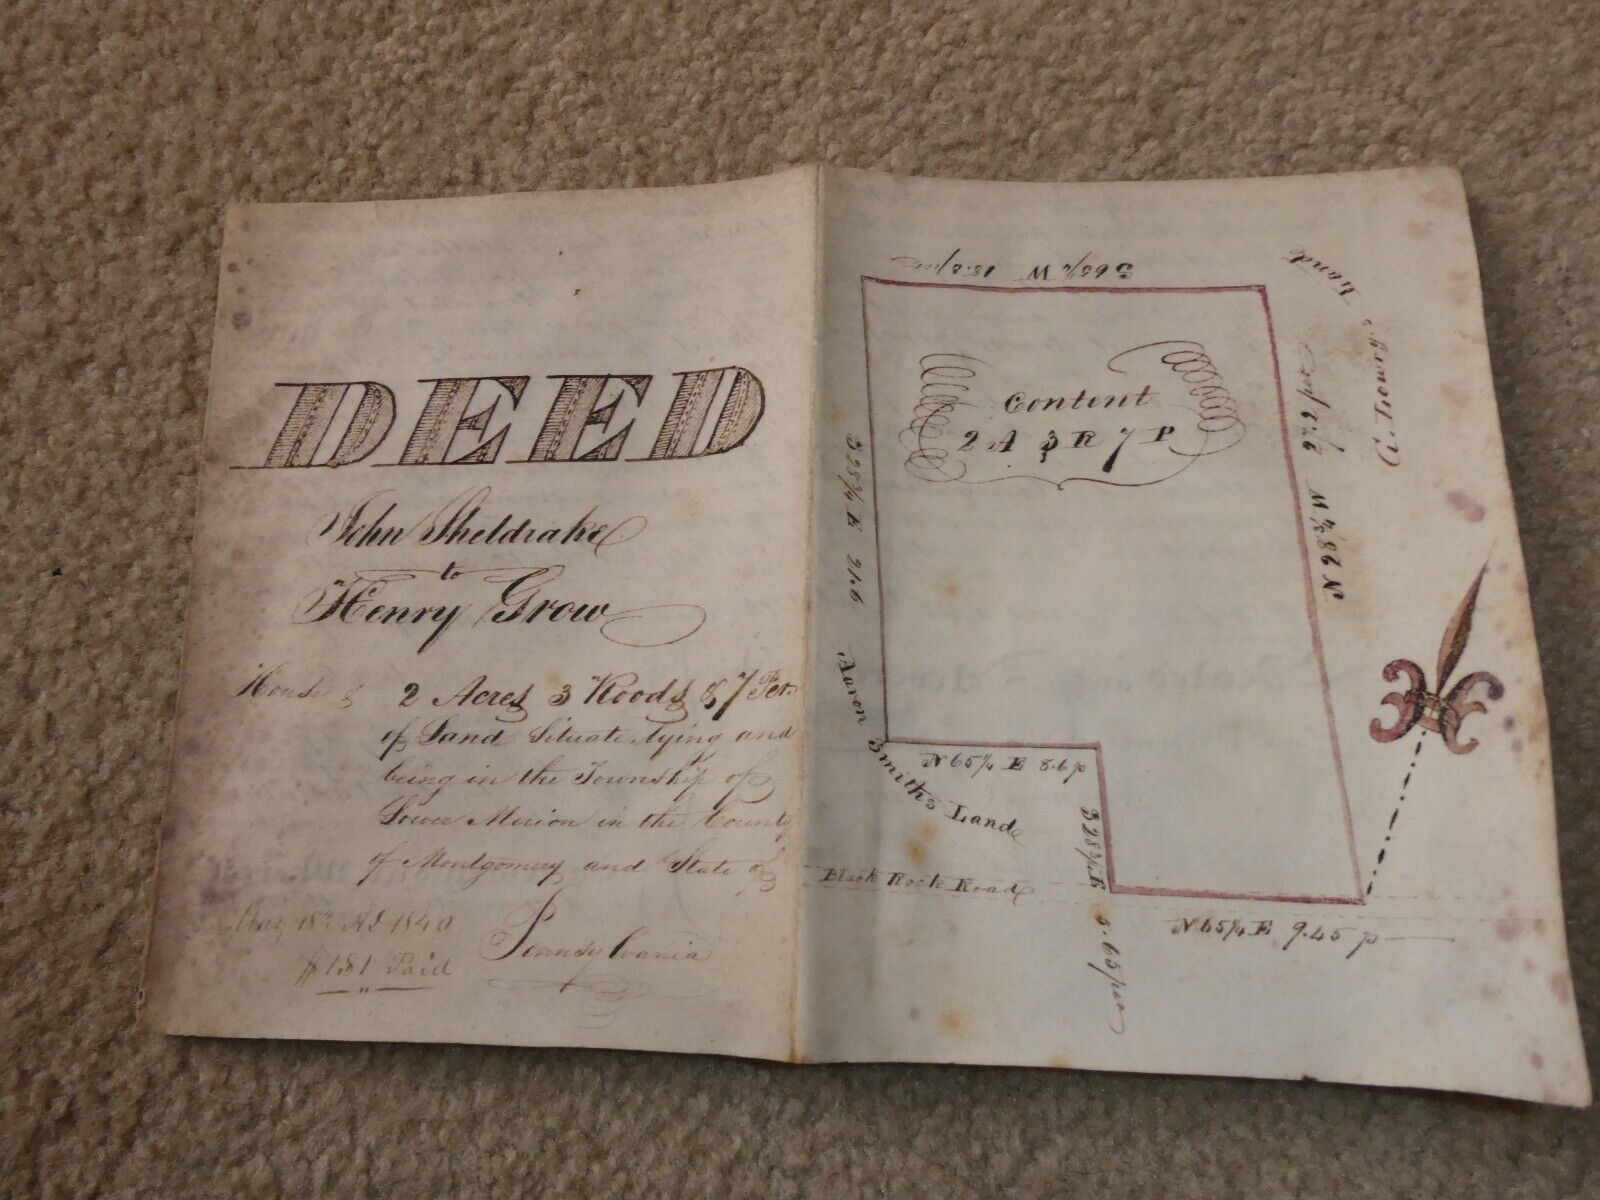 DEED
John Sheldrake
to
Henry Grow
House & 2 Acres 3 Roods & 7 Per
of Land Situate lying and
being in the Township of
Lower Merion in the County
of Montgomery and State of
Pennsylvania
18th AD 1840
$1.81 Paid
S 65¼ W 18.8 per
Content
2 A 3 R 7 P
S 28¾ E 21.6
N 28¾ W 27.2 per
Land
Aaron Smiths Land
N 65¼ E 8.6 p
S 28¾ E 5.65 per
Black Rock Road
N 65¼ E 9.45 p